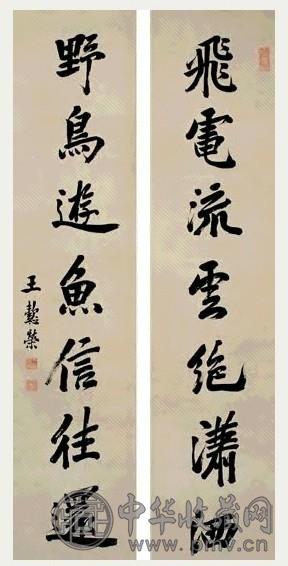 飛電流雲絶瀟洒
野鳥遊魚信往還
王懿榮
中华收藏网
www.pmv.cn